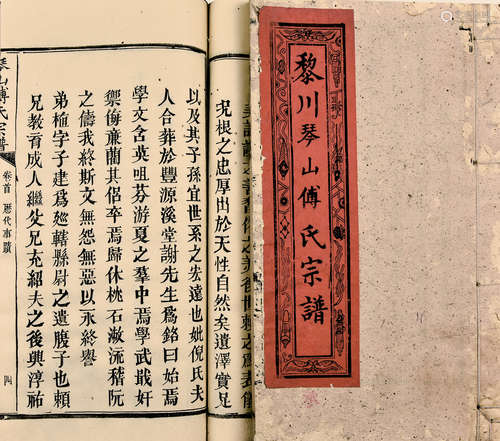 黎川琴山傅氏宗譜
光根之忠厚出於天性自然矣遺澤實足
以及其子孫宜世系之宏遠也妣倪氏夫
人合葬於豐源溪堂謝先生爲銘曰始焉
學文含英咀芬游夏之羣中焉學武戢奸
禦侮亷藺其侶卒焉歸休枕石漱流嵇阮
之儔我終斯文無怨無惡以永終譽
弟植字子建爲廵轄縣尉之遺腹子也賴
兄教育成人繼父兄充紹夫之後興淳祐
琴山傅氏宗譜
卷首
歷代事蹟
四